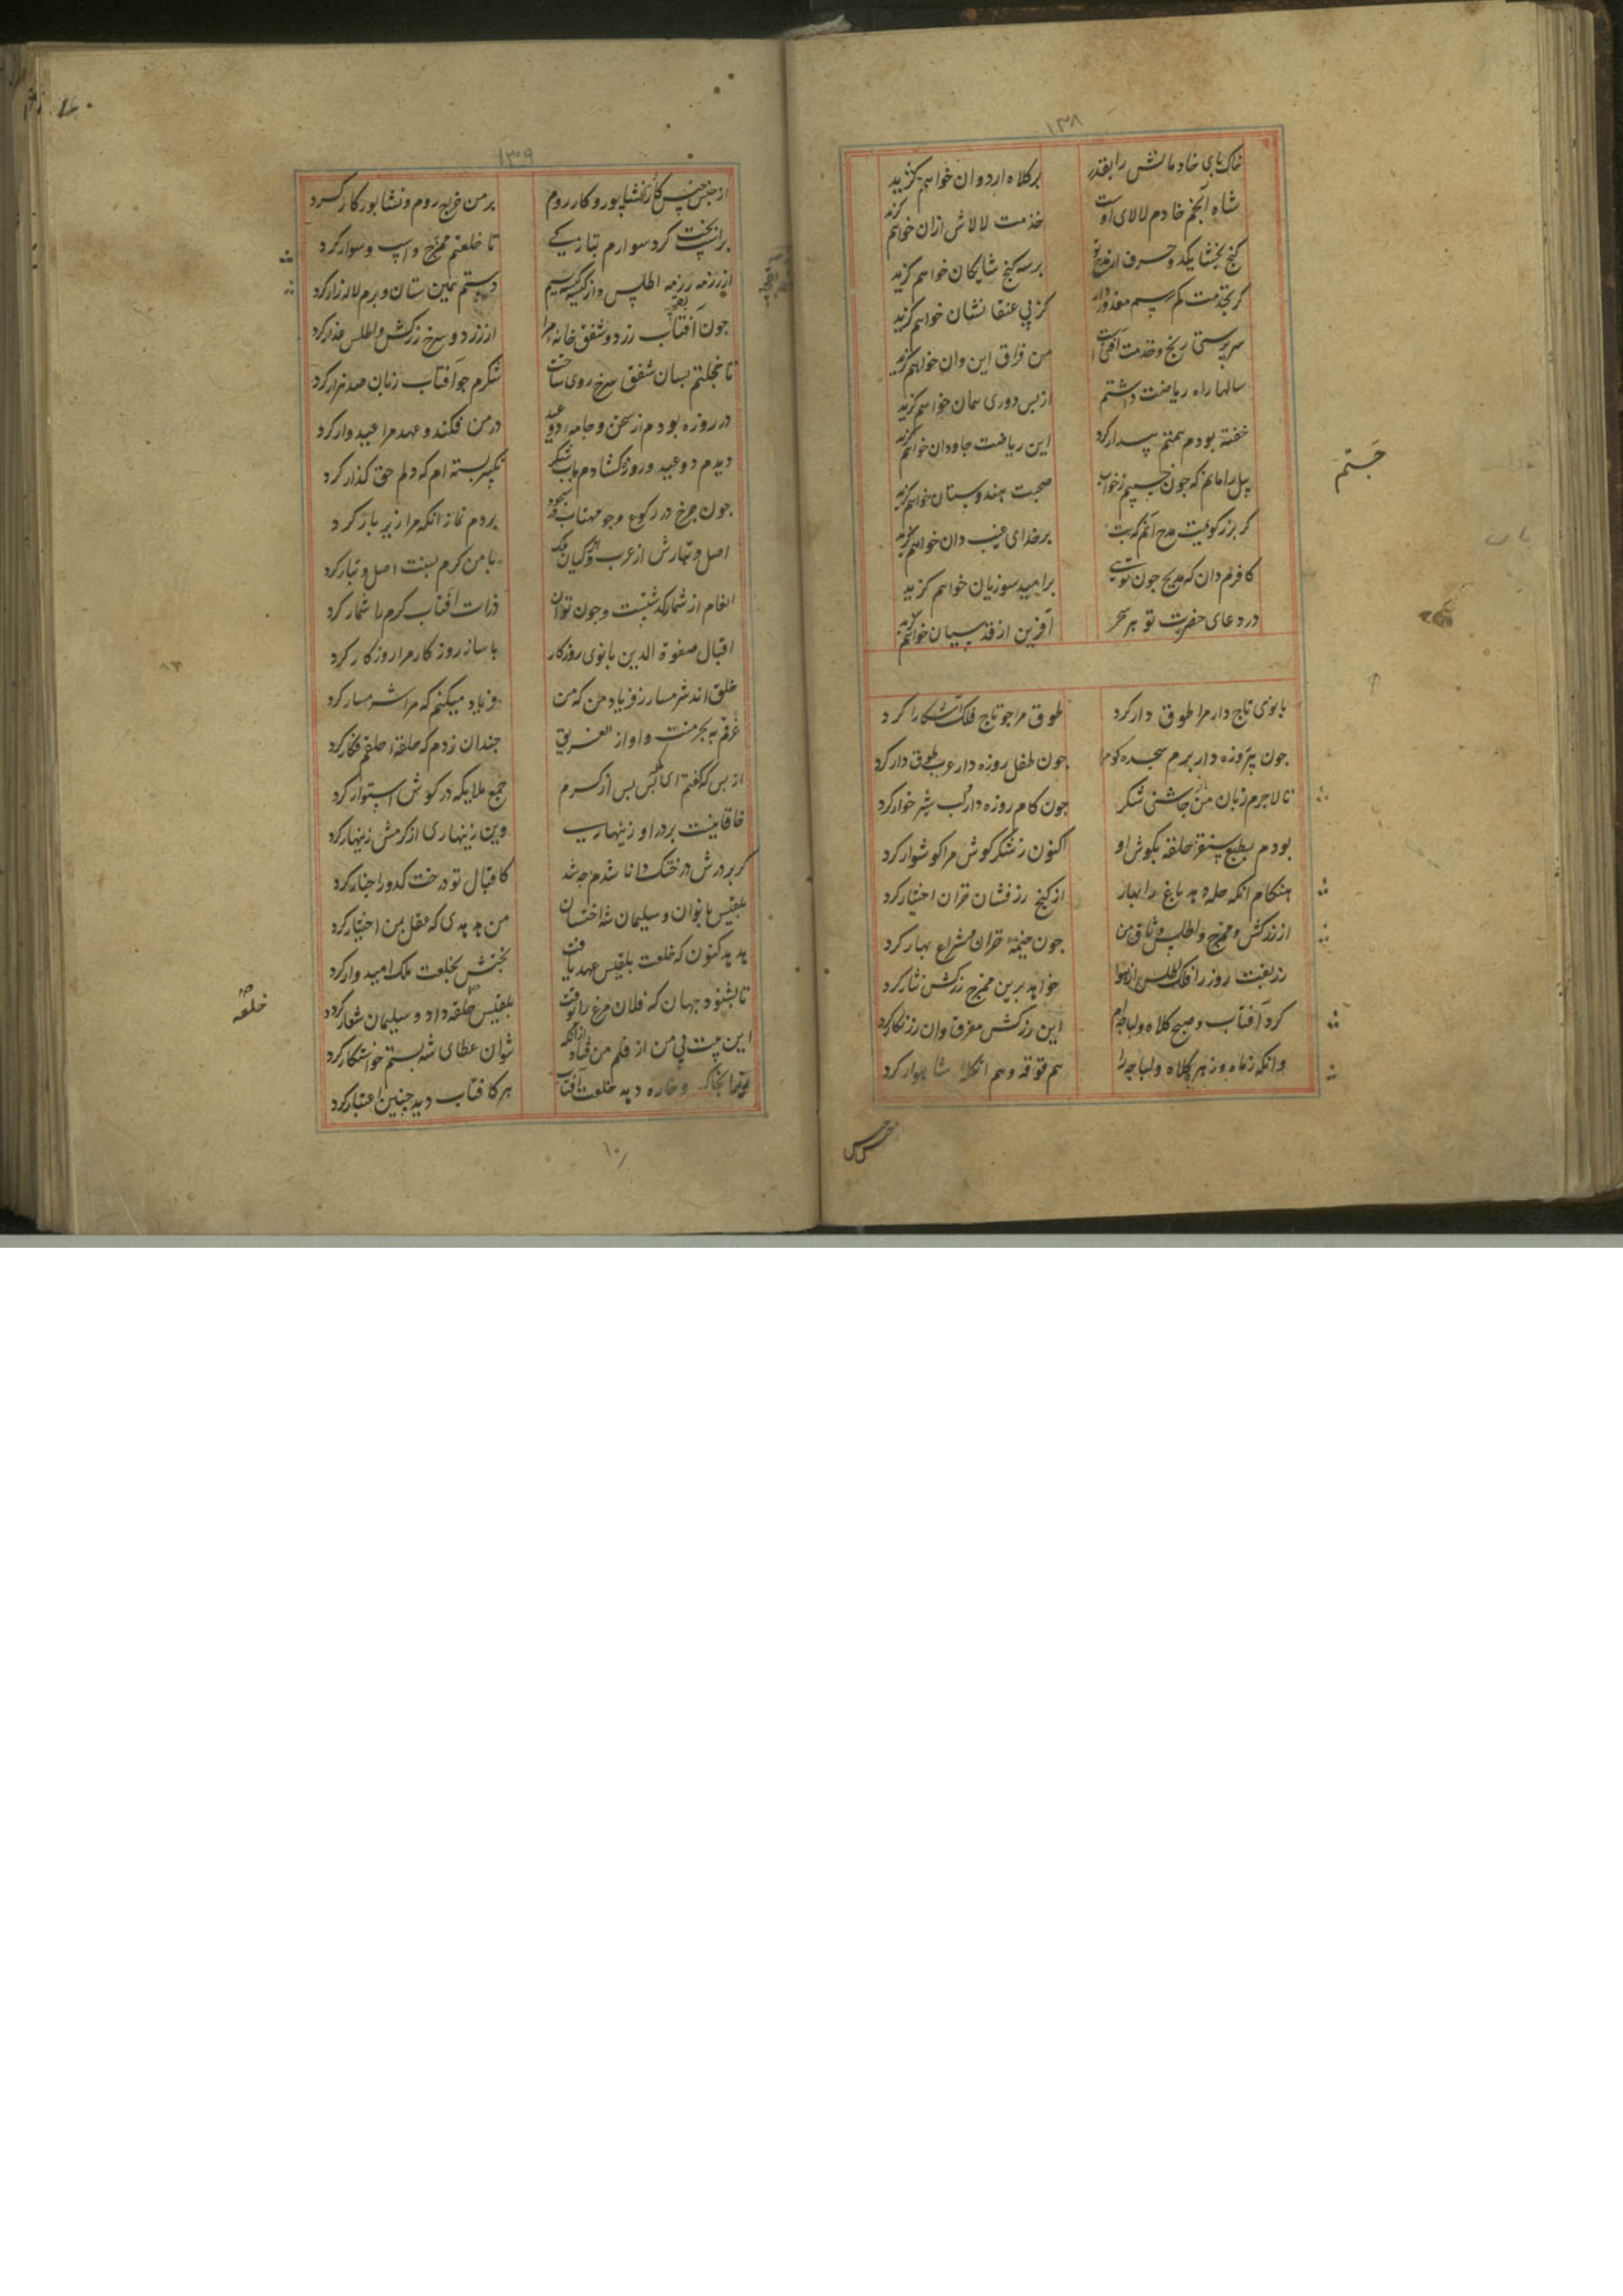 ١٣٨
خاک پای خادمانش را بقدر
برکلاه اردوان خواهم گزید
شاه انجم خادم لالای اوست
خدمت لالاش ازان خواهم گزید
کنج بخشا یکدو حرف از مدح تو
برسه کنج شایکان خواهم گزید
کر بخدمت کم رسم معذور دار
کز پی عنقا نشان خواهم گزید
سرپرستی رنج و خدمت آفت است
من فراق این وان خواهم گزید
سالها راه ریاضت داشتم
از پس دوری همان خواهم گزید
خفته بودم همتم بیدار کرد
این ریاضت جاودان خواهم گزید
پیل را مانم که چون جستم ز خواب
صحبت هندوستان خواهم گزید
کر بزرکویت مدح آنم که بت
برخدای غیب دان خواهم گزید
کافرم دان که مدیح چون تویی
برامید سوزیان خواهم گزید
در دعای حضرت تو هر سحر
آفرین از قدسیان خواهم گزید
جستم
بانوی تاج دار مرا طوق دار کرد
طوق مرا جو تاج فلک اشکارا کرد
جون پیروزه دار برم سجده کو مرا
جون طفل روزه دار عرب طوق دار کرد
تا لاجرم زبان من از جاشنی شکر
جون کام روزه دار لب شیر خوار کرد
بودم بطبع سنقر حلقه بکوش او
اکنون ز شکر کوش مرا کوشوار کرد
هنکام انکه حله دهد باغ را بهار
از کنج زرفشان خزان اختیار کرد
از زرکش و ممزج و اطلس وثاق من
جون خیمهٔ خزان و شراع بهار کرد
زربفت روز را فلک اطلس از هوا
خواهد برین ممزج زرکش نثار کرد
کرد آفتاب و صبح کلاه و لباچه‌ام
این زرکش مغرق وان زرنکار کرد
وانکه ز ماه و زهره کلاه و لباچه را
هم قوقه و هم انکله شاهوار کرد
١٣٩
از جنس جنس کار نشاپور و کار روم
بر من خریج روم و نشابور کار کرد
براسب بخت کرد سوارم بتازکی
تا خلعتم ممزج و اسب و سوار کرد
از رزمه رزمه اطلس و از کیسه کیسه سیم
دستم سمین ستان و برم لاله زار کرد
جون آفتاب زرد و شفق خانه مرا
از زرد و سرخ زرکش و اطلس عذار کرد
تا خجلتم بسان شفق سرخ روی ساخت
شکرم جو آفتاب زبان صد هزار کرد
در روزه بودم از سخن و جامه دو عید
در من فکند و عهد مرا عید وار کرد
دیدم دو عید و روزه کشادم بآب شکر
تکبیر بسته ام که دلم حق کذار کرد
جون جرخ در رکوع و جو مهتاب در سجود
بردم نماز انکه مرا زیر بار کرد
اصل و تبارش از عرب و کیان ملک
با من کرم بنسبت اصل و تبار کرد
انعام از شمار کذشتست و جون توان
ذرات آفتاب کرم را شمار کرد
اقبال صفوة الدین بانوی روزکار
با ساز روز کار مرا روزکار کرد
خلق اند شرمسار ز فریاد من که من
فریاد میکنم که مرا شرمسار کرد
غرقم به بحر منت و آواز الغریق
جندان زدم که حلقه احلقم فکار کرد
از بس که کفتم ای ملکه بس بس از کرم
جمع ملایکه در کوش استوار کرد
خاقانیست بردر او زینهاریی
وین زینهاری از کرمش زینهار کرد
کر بر درش درختک دانا شدم جه شد
کاقبال تو درخت کدو را جنار کرد
بلقیس بانوان و سلیمان شه اخستان
من هدهدی که عقل بمن اختیار کرد
هدهد کنون که خلعت بلقیس عهد یافت
بختش بخلعت ملک امیدوار کرد
تا بشنود جهان که فلان مرغ را بوقت
بلقیس حلقه داد و سلیمان شعار کرد
خلعه
شوان عطای شه بستم خواستکار کرد
خورا بخاک و خاره دهد خلعت آفتاب
هر کافتاب دید جنین اعتبار کرد